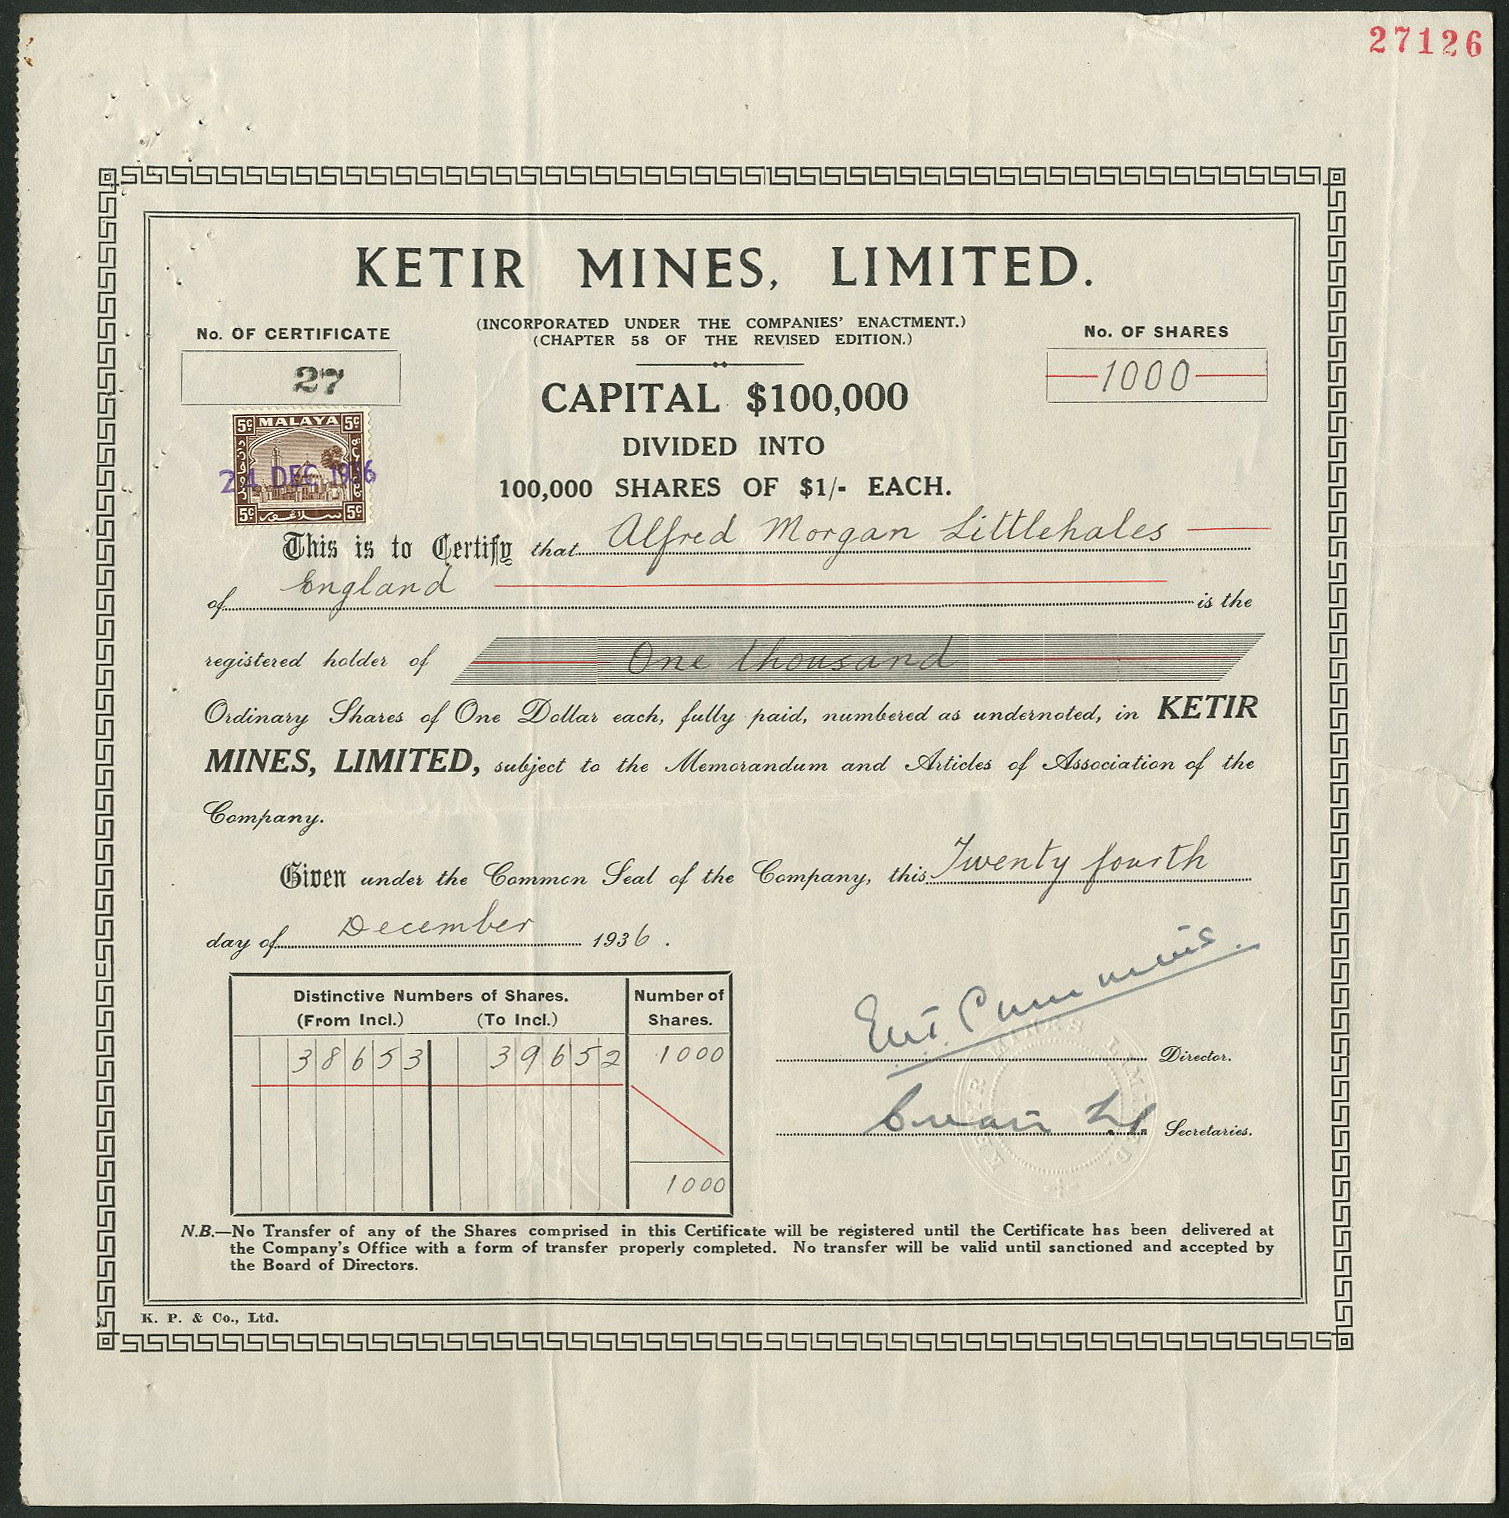 27126
KETIR MINES, LIMITED.
(INCORPORATED UNDER THE COMPANIES' ENACTMENT.)
(CHAPTER 58 OF THE REVISED EDITION.)
No. OF CERTIFICATE
27
No. OF SHARES
1000
CAPITAL $100,000
DIVIDED INTO
100,000 SHARES OF $1/- EACH.
5c MALAYA 5c
24 DEC 1936
5c سلاڠور 5c
This is to Certify that Alfred Morgan Littlehales
of England is the
registered holder of One thousand
Ordinary Shares of One Dollar each, fully paid, numbered as undernoted, in KETIR
MINES, LIMITED, subject to the Memorandum and Articles of Association of the
Company.
Given under the Common Seal of the Company, this Twenty fourth
day of December 1936.
Distinctive Numbers of Shares.
(From Incl.) (To Incl.)
Number of
Shares.
38653 39652 1000
1000
Director.
Secretaries.
KETIR MINES LIMITED.
N.B.—No Transfer of any of the Shares comprised in this Certificate will be registered until the Certificate has been delivered at
the Company's Office with a form of transfer properly completed. No transfer will be valid until sanctioned and accepted by
the Board of Directors.
K. P. & Co., Ltd.